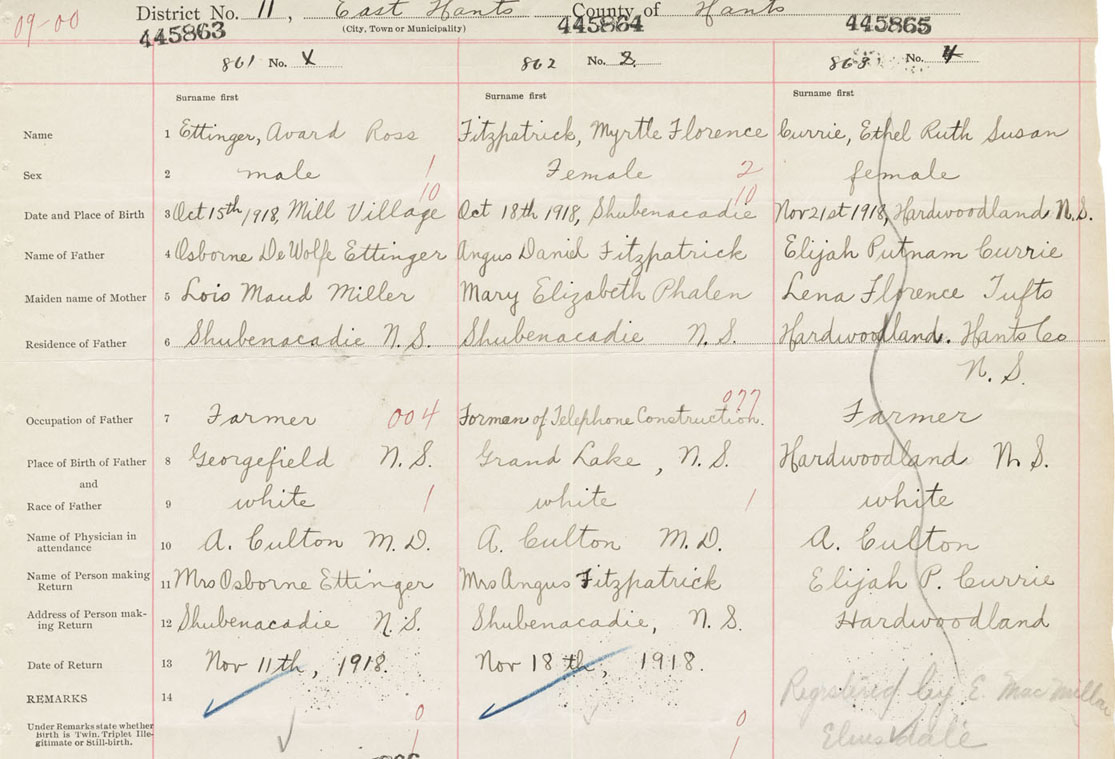 09-00 District No. 11, East Hants County of Hants
(City, Town or Municipality)
445863 445864 445865
861 No. 862 No. 863 No. 4
Surname first Surname first Surname first
Name 1 Ettinger, Avard Ross Fitzpatrick, Myrtle Florence Currie, Ethel Ruth Susan
Sex 2 male 1 Female 2 female
10 10
Date and Place of Birth 3 Oct 15th, 1918, Mill Village Oct 18th 1918, Shubenacadie Nov 21st 1918, Hardwoodland N.S.
Name of Father 4 Osborne De Wolfe Ettinger Angus Daniel Fitzpatrick Elijah Putnam Currie
Maiden name of Mother 5 Lois Maud Miller Mary Elizabeth Phalen Lena Florence Tufts
Residence of Father 6 Shubenacadie N.S. Shubenacadie N.S. Hardwoodland. Hants Co
N.S.
077
Occupation of Father 7 Farmer 004 Forman of Telephone Construction. Farmer
Place of Birth of Father 8 Georgefield N.S. Grand Lake, N.S. Hardwoodland N.S.
and
Race of Father 9 white 1 white 1 white
Name of Physician in
attendance 10 A. Culton M.D. A. Culton M.D. A. Culton
Name of Person making
Return 11 Mrs Osborne Ettinger Mrs Angus Fitzpatrick Elijah P. Currie
Address of Person mak-
ing Return 12 Shubenacadie N.S. Shubenacadie, N.S. Hardwoodland
Date of Return 13 Nov 11th, 1918. Nov 18th, 1918.
REMARKS 14 Registered by E. MacMillan
Under Remarks state whether
Birth is Twin, Triplet Ille-
gitimate or Still-birth.
0 0
1 1
Elmsdale